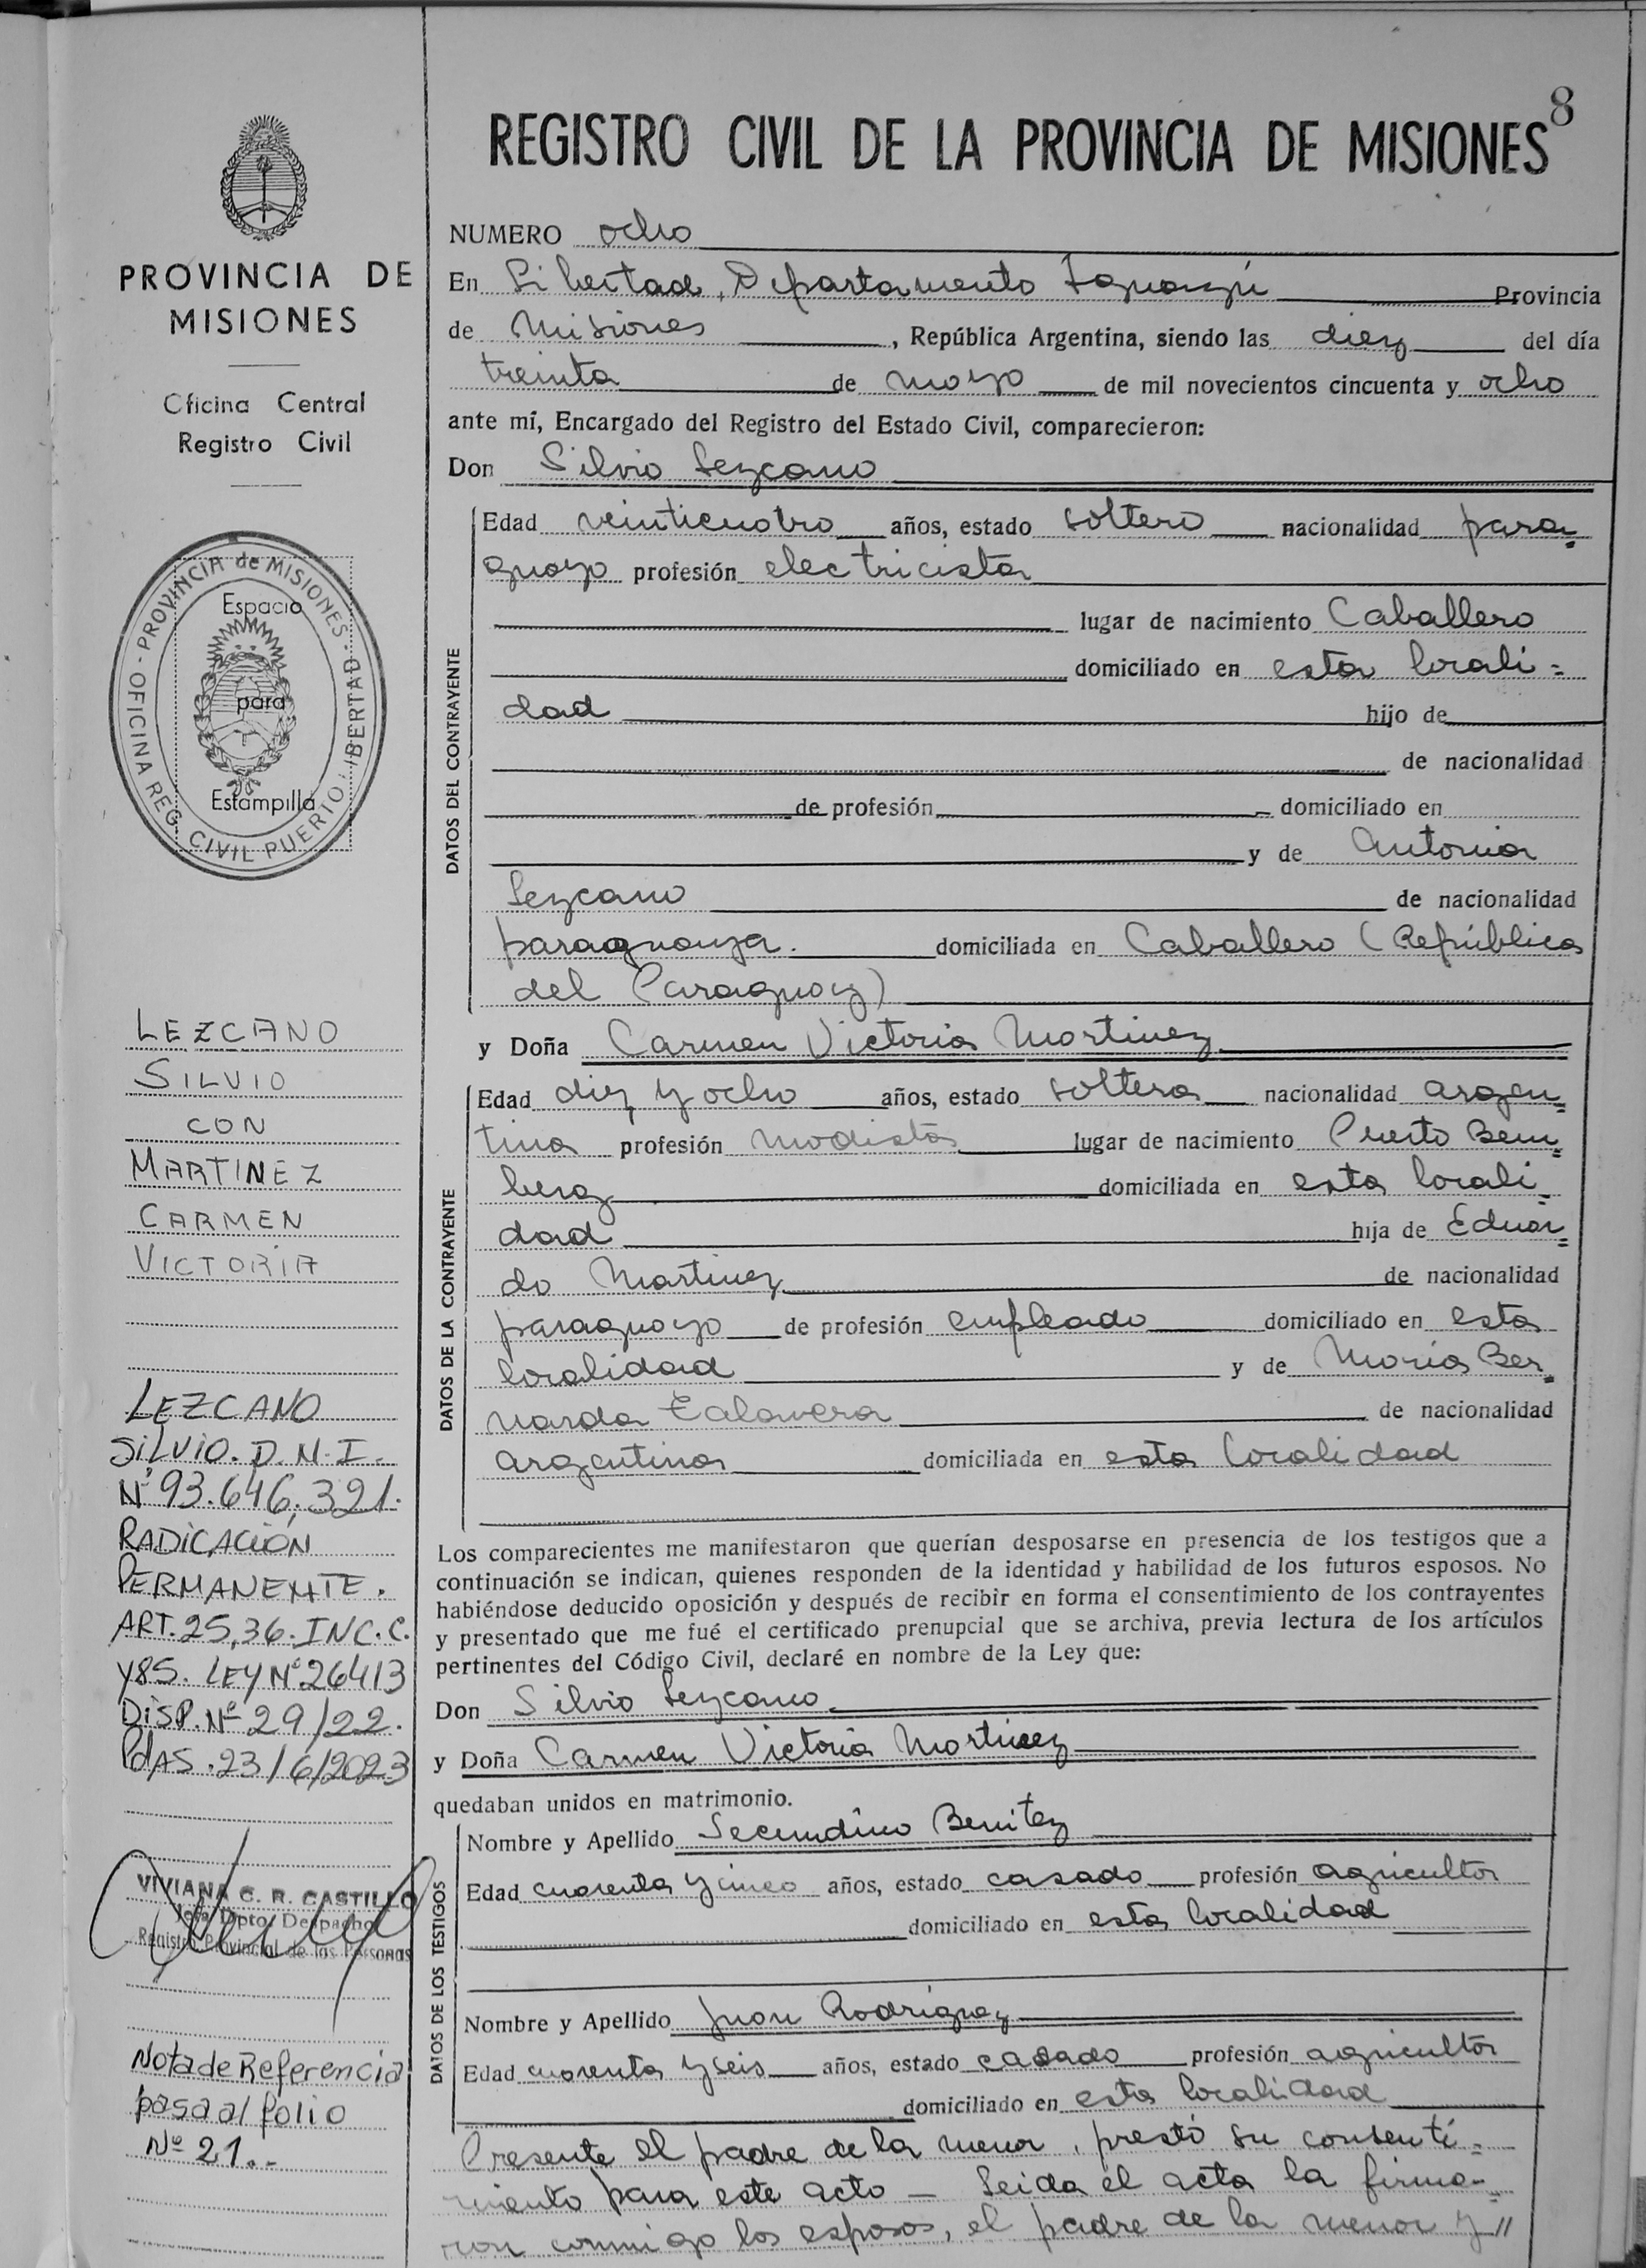 8
REGISTRO CIVIL DE LA PROVINCIA DE MISIONES
PROVINCIA DE
MISIONES
Oficina Central
Registro Civil
OFICINA REG. CIVIL PUERTO LIBERTAD - PROVINCIA de MISIONES
Espacio
para
Estampilla
LEZCANO
SILVIO
CON
MARTINEZ
CARMEN
VICTORIA
LEZCANO
SILVIO. D.N.I.
Nº 93.646.321.
RADICACIÓN
PERMANENTE.
ART. 25,36. INC. C.
Y85. LEY Nº 26413
DISP. Nº 29/22.
PdAS. 23/6/2023
VIVIANA C. R. CASTILLO
Jefa Dpto. Despacho
Registro Provincial de las Personas
Nota de Referencia
pasa al folio
Nº 21.-
NUMERO ocho
En Libertad, Departamento Iguazú Provincia
de Misiones, República Argentina, siendo las diez del día
treinta de mayo de mil novecientos cincuenta y ocho
ante mí, Encargado del Registro del Estado Civil, comparecieron:
Don Silvio Lezcano
DATOS DEL CONTRAYENTE
Edad veinticuatro años, estado soltero nacionalidad para=
guayo profesión electricista
lugar de nacimiento Caballero
domiciliado en esta locali=
dad hijo de
de nacionalidad
de profesión domiciliado en
y de Antonia
Lezcano de nacionalidad
paraguaya. domiciliada en Caballero (República
del Paraguay)
y Doña Carmen Victoria Martinez
DATOS DE LA CONTRAYENTE
Edad diez y ocho años, estado soltera nacionalidad argen=
tina profesión modista lugar de nacimiento Puerto Bem=
berg domiciliada en esta locali=
dad hija de Eduar=
do Martinez de nacionalidad
paraguayo de profesión empleado domiciliado en esta
localidad y de María Ber=
narda Talavera de nacionalidad
argentina domiciliada en esta localidad
Los comparecientes me manifestaron que querían desposarse en presencia de los testigos que a
continuación se indican, quienes responden de la identidad y habilidad de los futuros esposos. No
habiéndose deducido oposición y después de recibir en forma el consentimiento de los contrayentes
y presentado que me fué el certificado prenupcial que se archiva, previa lectura de los artículos
pertinentes del Código Civil, declaré en nombre de la Ley que:
Don Silvio Lezcano
y Doña Carmen Victoria Martinez
quedaban unidos en matrimonio.
DATOS DE LOS TESTIGOS
Nombre y Apellido Secundino Benitez
Edad cuarenta y cinco años, estado casado profesión agricultor
domiciliado en esta localidad
Nombre y Apellido Juan Rodríguez
Edad cuarenta y seis años, estado casado profesión agricultor
domiciliado en esta localidad
Presente el padre de la menor, prestó su consenti=
miento para este acto — Leida el acta la firma=
ron conmigo los esposos, el padre de la menor y //